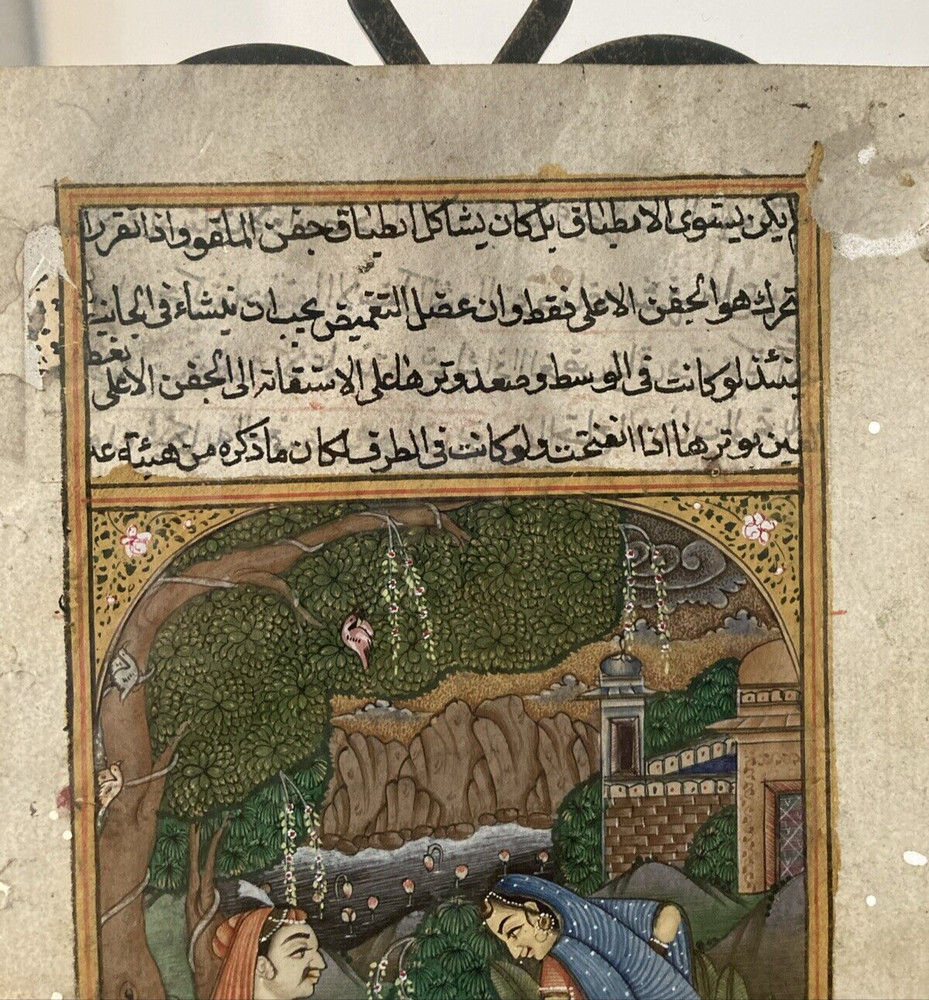 لم يكن يستوى الانطباق بل كان يشاكل انطباق جفن الملقوو اذا تقررا
تحرك هو الجفن الاعلى فقط وان عضل التغميض يجب ان ينشاء فى الجانب
ينئذ لو كانت فى الوسط وصعد وترها على الاستقامة الى الجفن الاعلى يغط
ين بوترهنا اذا انفتحت ولو كانت فى الطرف لكان ما ذكره من هيئة